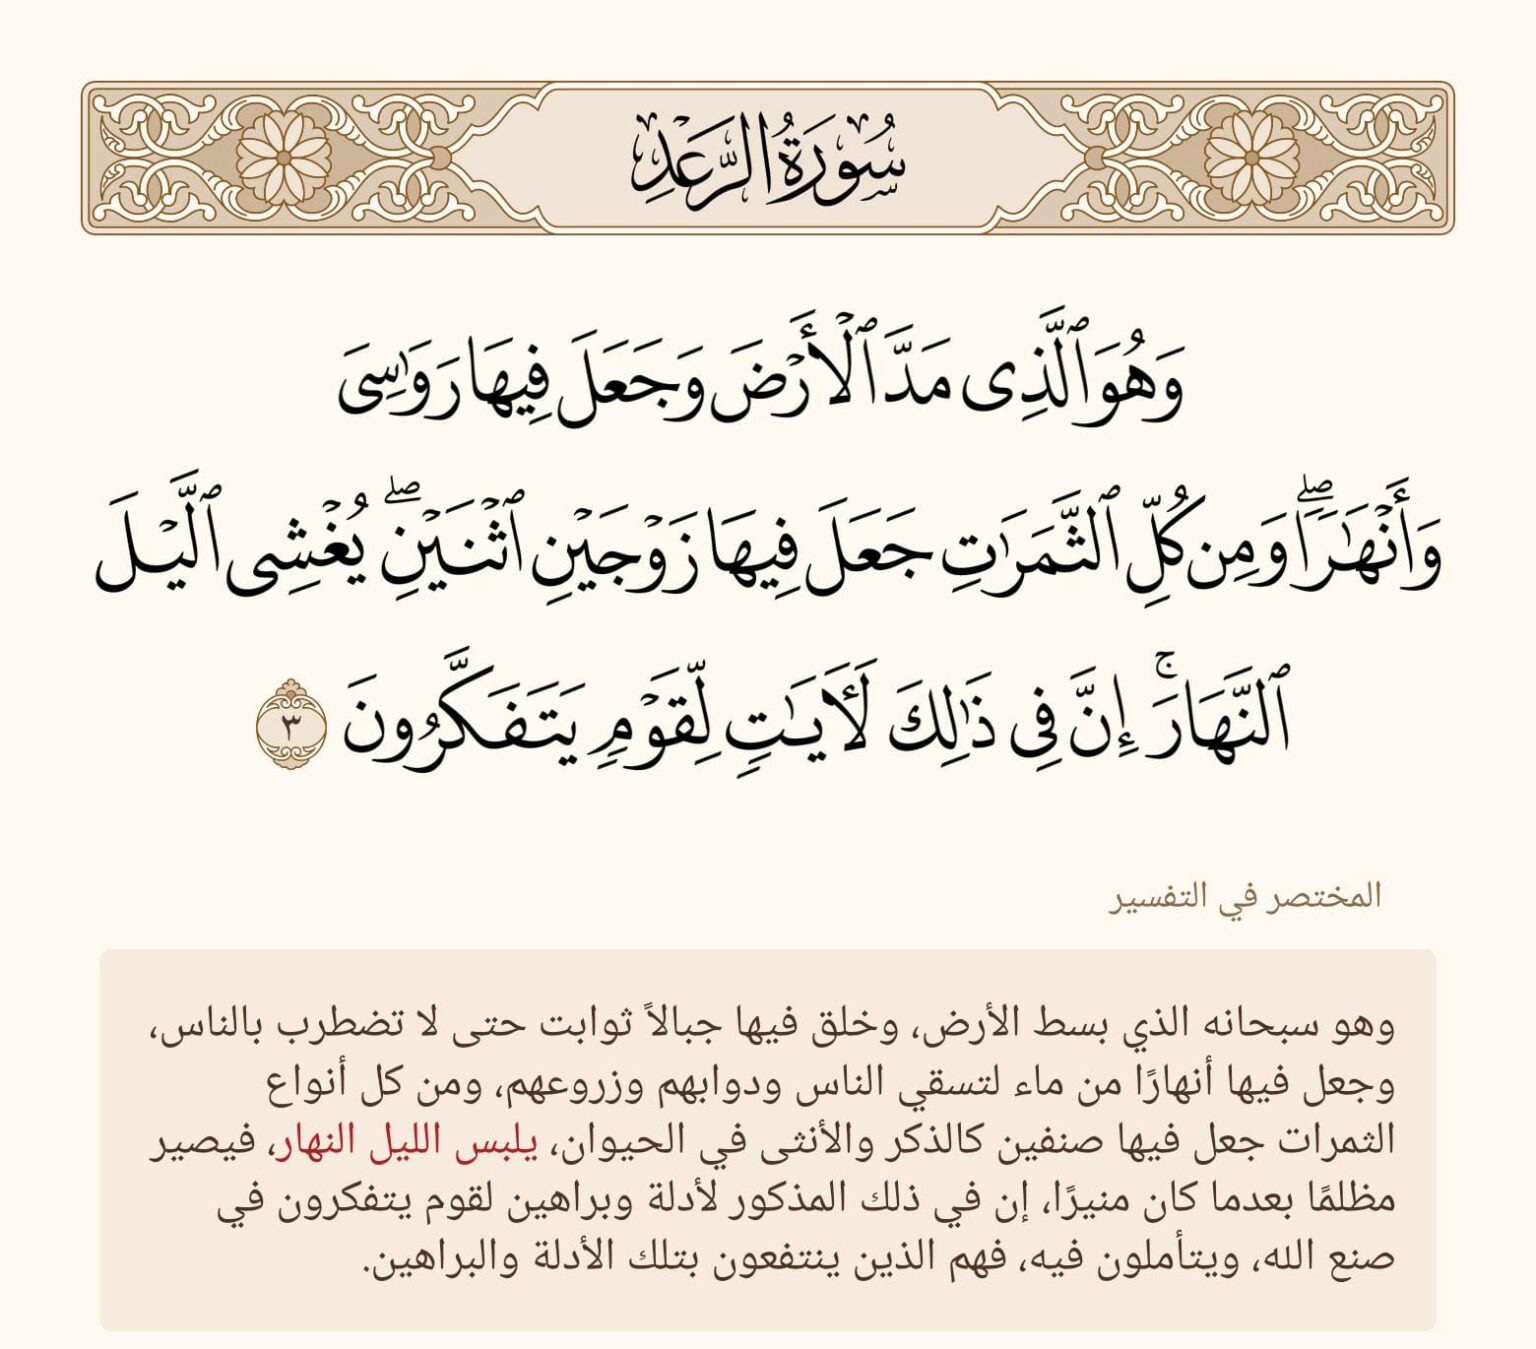 سُورَةُ الرَّعْدِ
وَهُوَ ٱلَّذِى مَدَّ ٱلْأَرْضَ وَجَعَلَ فِيهَا رَوَٰسِىَ
وَأَنْهَٰرًاۖ وَمِن كُلِّ ٱلثَّمَرَٰتِ جَعَلَ فِيهَا زَوْجَيْنِ ٱثْنَيْنِۖ يُغْشِى ٱلَّيْلَ
ٱلنَّهَارَۚ إِنَّ فِى ذَٰلِكَ لَـَٔايَٰتٍ لِّقَوْمٍ يَتَفَكَّرُونَ ٣
المختصر في التفسير
وهو سبحانه الذي بسط الأرض، وخلق فيها جبالاً ثوابت حتى لا تضطرب بالناس،
وجعل فيها أنهارًا من ماء لتسقي الناس ودوابهم وزروعهم، ومن كل أنواع
الثمرات جعل فيها صنفين كالذكر والأنثى في الحيوان، يلبس الليل النهار، فيصير
مظلمًا بعدما كان منيرًا، إن في ذلك المذكور لأدلة وبراهين لقوم يتفكرون في
صنع الله، ويتأملون فيه، فهم الذين ينتفعون بتلك الأدلة والبراهين.